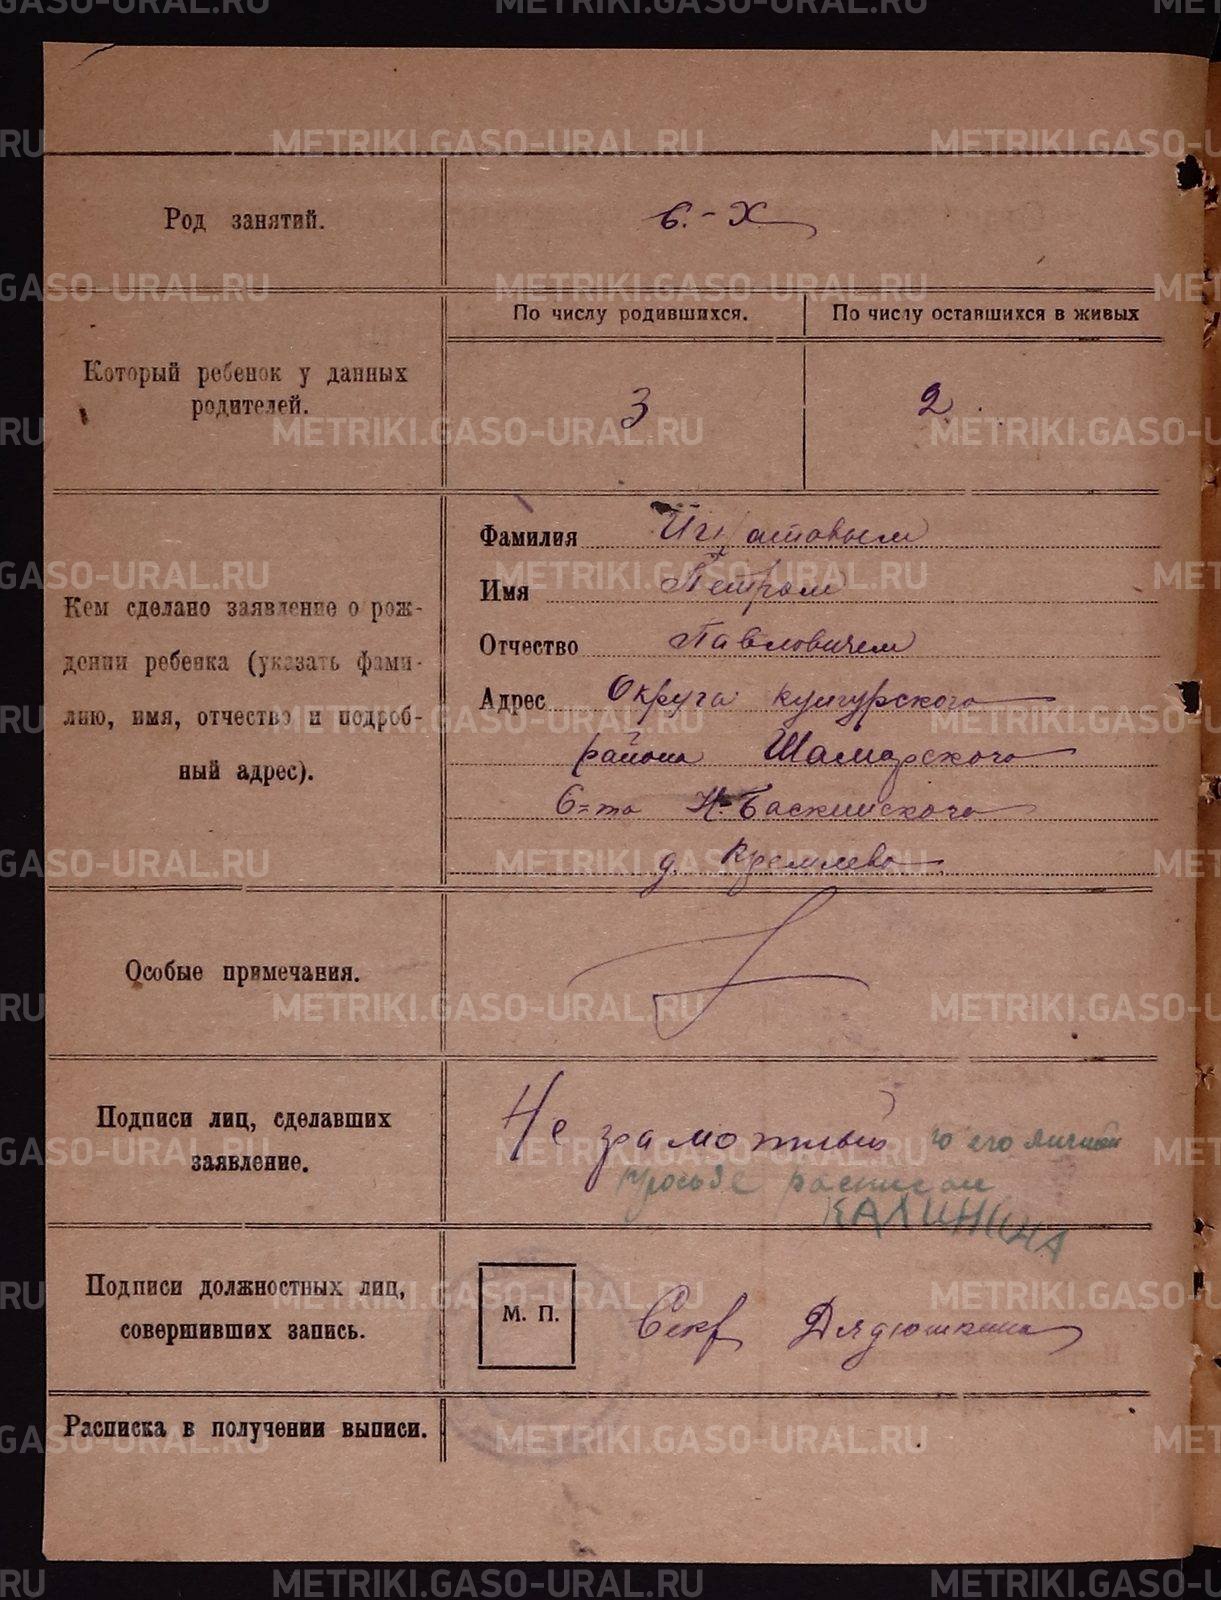 Род занятий.
с.-х
Который ребенок у данных
родителей.
По числу родившихся.
По числу оставшихся в живых
3
2.
Кем сделано заявление о рож-
дении ребенка (указать фами-
лию, имя, отчество и подроб-
ный адрес).
Фамилия Игнатовым
Имя Петром
Отчество Павловичем
Адрес Округа кунгурского
района Шамарского
С-та Н-Баскинского
д. Кремлево
Особые примечания.
Подписи лиц, сделавших
заявление.
Не грамотный по его личной
просьбе расписал
КАЛИНИНА
Подписи должностных лиц,
совершивших запись.
М. П.
Секр Дядюшкина
Расписка в получении выписи.
METRIKI.GASO-URAL.RU